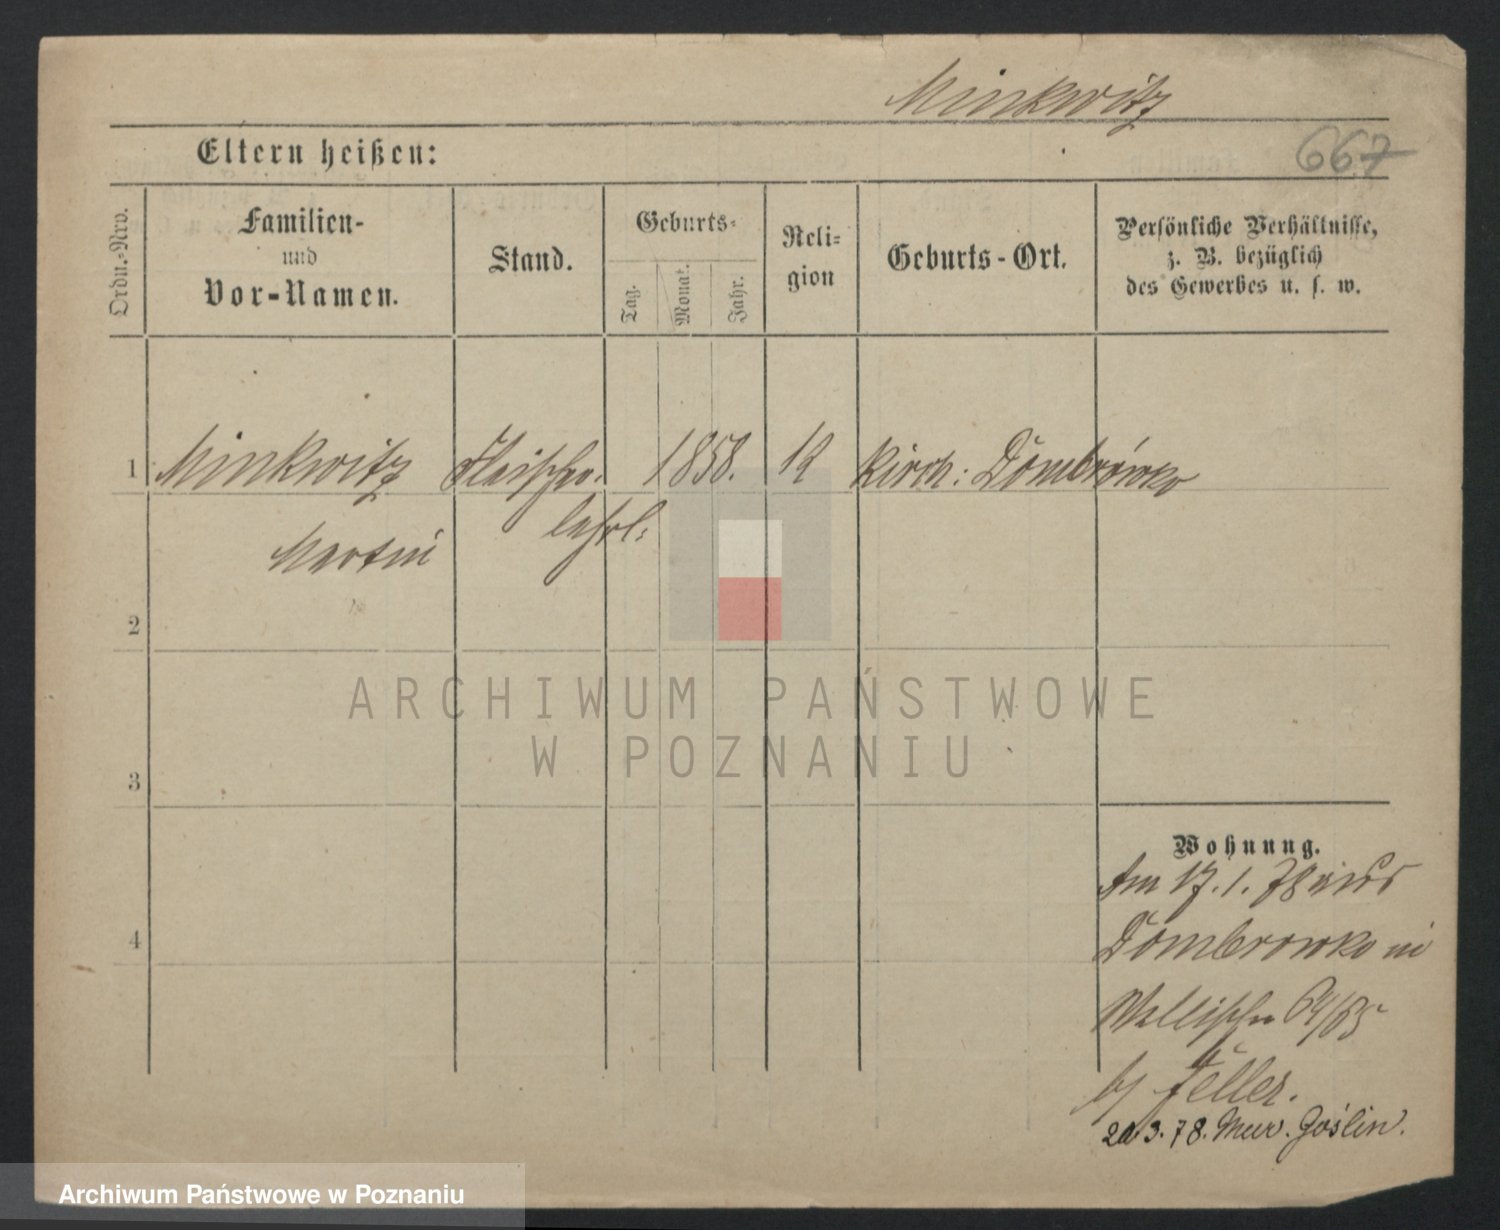 Minkwitz
667
Eltern heißen:
Ordn.-Nro.
Familien-
und
Vor-Namen.
Stand.
Geburts-
Tag.
Monat.
Jahr.
Reli-
gion
Geburts-Ort.
Persönliche Verhältnisse,
z. B. bezüglich
des Gewerbes u. s. w.
1 Minkwitz Fleischer- 1858. K Kirch: Dombrówko
Martin lehrl:
2
ARCHIWUM PAŃSTWOWE
W POZNANIU
3
Wohnung.
Am 17.1.78 aus
4
Dombrowko in
Wallischei 64/65
by Feller.
20.3.78. Mur. Goślin.
Archiwum Państwowe w Poznaniu